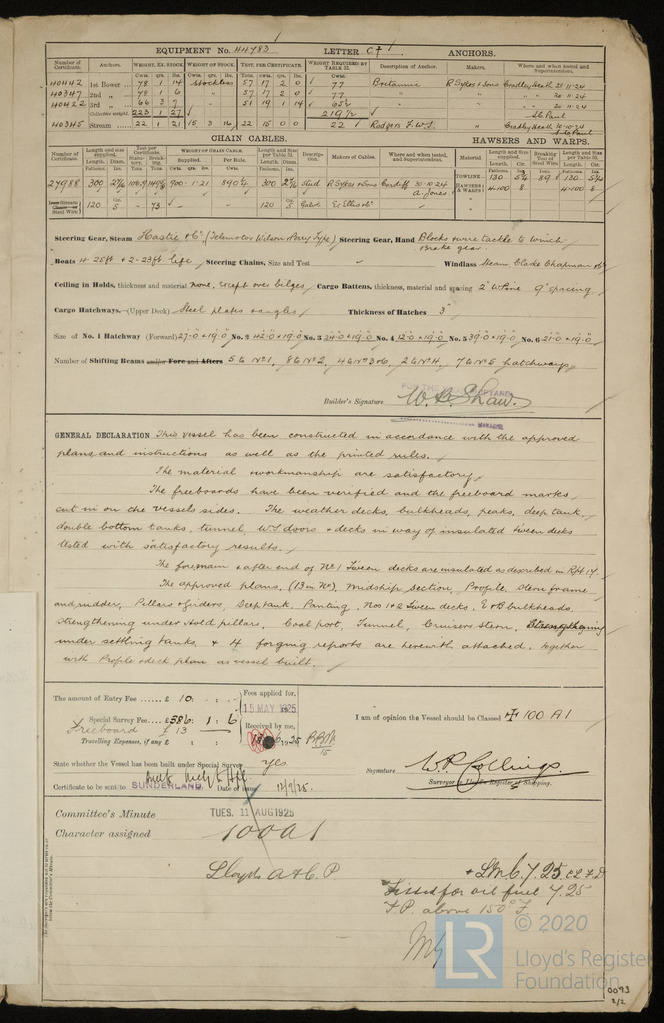 EQUIPMENT No. 44783 LETTER C†1 ANCHORS.
Number of Certificate. Anchors. WEIGHT, EX. STOCK. WEIGHT OF STOCK. TEST, PER CERTIFICATE. WEIGHT REQUIRED BY TABLE 31. Description of Anchor. Makers. Where and when tested and Superintendent.
Cwts. qrs. lbs. Cwts. qrs. lbs. Tons. cwts. qrs. lbs. Cwts.
40442 1st Bower 78 1 14 Stockless 57 17 2 0 77 Britannic R Sykes & Sons Cradley Heath 21-11-24
40347 2nd " 78 1 6 " 57 17 2 0 77 " " 20-11-24
40422 3rd " 66 3 7 " 51 19 1 14 65½ " " 20-11-24
Collective weight 223 1 27 219½ S.C. Paul
40345 Stream 22 1 21 15 3 16 22 15 0 0 22 Rodgers F.W.S. " Cradley Heath 10-10-24
S.C. Paul
CHAIN CABLES. HAWSERS AND WARPS.
Number of Certificate. Length and size supplied. Test per Certificate. WEIGHT OF CHAIN CABLE. Length and Size per Table 31. Description. Makers of Cables. Where and when tested, and Superintendent. Material Length and Size supplied. Breaking Test of Steel Wire. Length and Size per Table 31.
Supplied. Per Rule.
TOWLINE 130 5¼ 89.8 130 5¼
27988 300 2 7/16 900-1-21 890¼ 300 2 7/16 Stud R. Sykes & Sons Cardiff 30-10-24
A. Jones
HAWSERS & WARPS 4-100 8 4-100 8
Stream Steel Wire 120 Cir. 5 73 120 Cir. 5 Galv. Ed Ellis & Co
Steering Gear, Steam Hastie & Co. (Telemotor Wilson & Pirry Type) Steering Gear, Hand Blocks & wire tackle to winch
Brake gear.
Boats 4 25ft & 2-23ft life Steering Chains, Size and Test " Windlass Steam, Clarke Chapman & Co
Ceiling in Holds, thickness and material none, except over bilges Cargo Battens, thickness, material and spacing 2" W Pine 9" spacing
Cargo Hatchways.—(Upper Deck) Steel plates & angles Thickness of Hatches 3"
Size of No. 1 Hatchway (Forward) 27'-0" x 19'-0" No. 2 42'-0" x 19'-0" No. 3 24'-0" x 19'-0" No. 4 12'-0" x 19'-0" No. 5 39'-0" x 19'-0" No. 6 21'-0" x 19'-0"
Number of Shifting Beams and/or Fore and Afters 5 to No 1, 8 to No 2, 4 to No 3 & 6, 2 to No 4, 7 to No 5 hatchways
Builder's Signature W. B. Shaw.
GENERAL DECLARATION This vessel has been constructed in accordance with the approved
plans and instructions as well as the printed rules.
The material & workmanship are satisfactory
The freeboards have been verified and the freeboard marks
cut in on the vessels sides. The weather decks, bulkheads, peaks, deep tank,
double bottom tanks, tunnel, W.T. doors & decks in way of insulated tween decks
tested with satisfactory results.
The foremain & after end of No 1 Tween decks are insulated as described in Rpt 17.
The approved plans, (13 in No), Midship section, Profile, Stern frame
and rudder, Pillars & Girders, Deep tank, Panting, Nos 1 & 2 Tween decks, bulkheads,
strengthening under hold pillars, Coal port, Tunnel, Cruiser stern, Strengthening
under settling tanks, & 4 forging reports are herewith attached, together
with Profile & deck plan as vessel built.
The amount of Entry Fee ...... £ 10 : - : - Fees applied for,
15 MAY 1925
Special Survey Fee... £ 586 : 1 : 6 Received by me,
Freeboard £ 13
Travelling Expenses, if any £ : :
I am of opinion the Vessel should be Classed ✠ 100 A1
State whether the Vessel has been built under Special Survey Yes
Signature W. P. Collings.
Surveyor to Lloyd's Register of Shipping.
Certificate to be sent to SUNDERLAND. Date of issue 12/9/25.
Committee's Minute TUES. 11 AUG 1925
Character assigned 100A1
Lloyds A & C. P + LMC. 7. 25 CL F D
Fitted for oil fuel 7. 25
F.P. above 150° F.
© 2020
LR Lloyd's Register
Foundation
0093
2/2